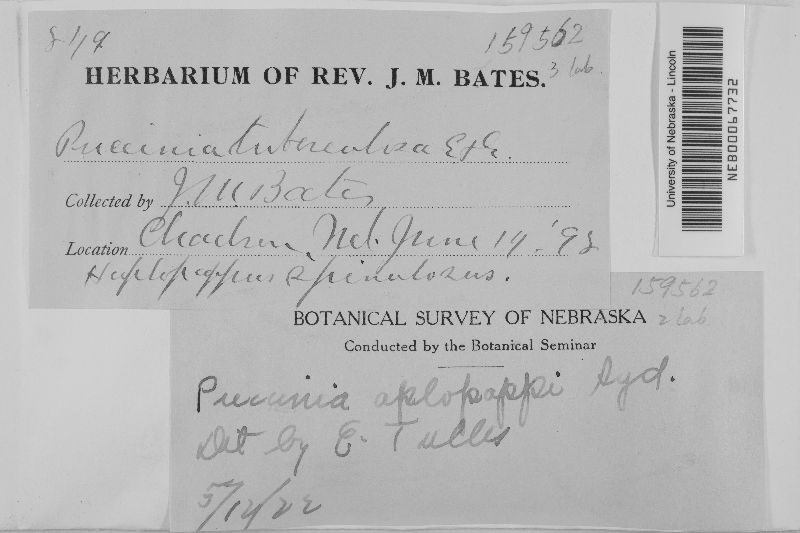 159562
3 lab.
HERBARIUM OF REV. J. M. BATES.
Puccinia tuberculosa E & G.
Collected by J. M. Bates
Location Chadron, Neb. June 14, '98
Haplopappus spinulosus.
University of Nebraska - Lincoln
NEB00067732
159562
BOTANICAL SURVEY OF NEBRASKA
Conducted by the Botanical Seminar
Puccinia aplopappi Syd.
Det by E. Tulles
5/12/22